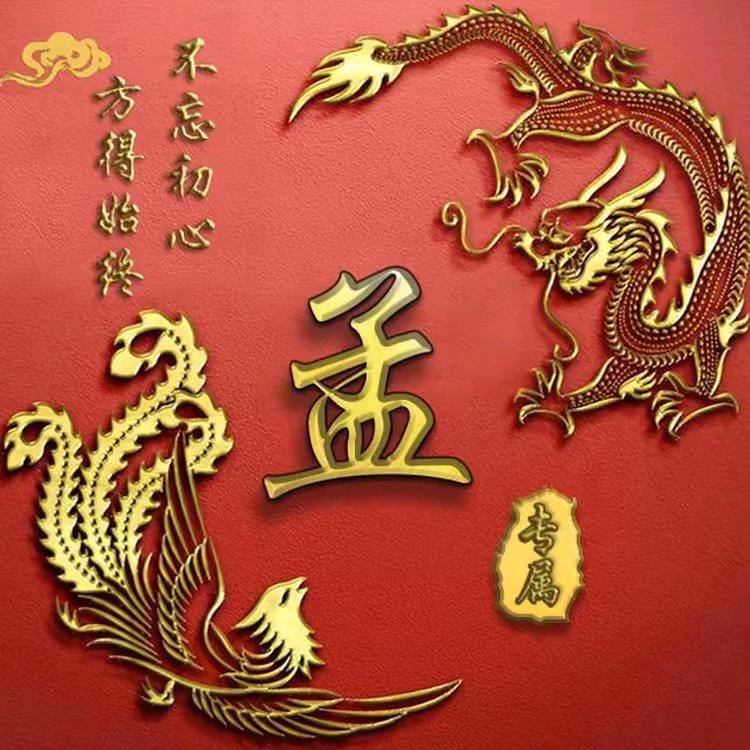 不忘初心
方得始终
孟
专属